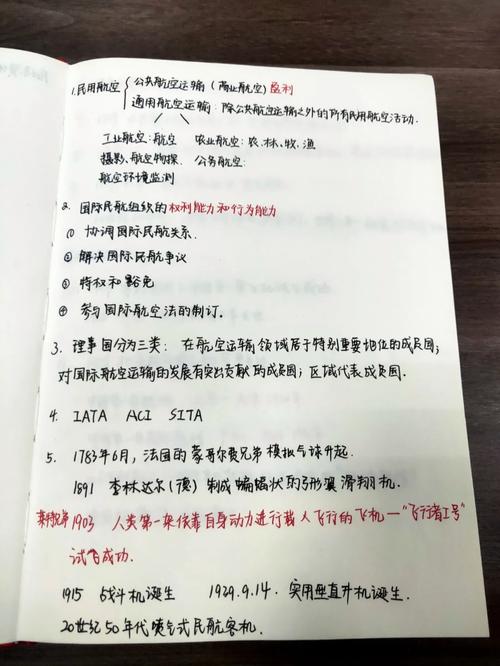 1.民用航空 { 公共航空运输（商业航空）盈利
通用航空运输：除公共航空运输之外的所有民用航空活动.
工业航空：航空 农业航空：农、林、牧、渔
摄影、航空物探、 公务航空：
航空环境监测
2. 国际民航组织的权利能力和行为能力
① 协调国际民航关系.
② 解决国际民航争议
③ 特权和豁免
④ 参与国际航空法的制订.
3. 理事国分为三类：在航空运输领域居于特别重要地位的成员国；
对国际航空运输的发展有突出贡献的成员国；区域代表成员国.
4. IATA ACI SITA
5. 1783年6月，法国的蒙哥尔费兄弟模拟气球升起.
1891 李林达尔（德）制成蝙蝠状的弓形翼滑翔机.
莱特兄弟1903 人类第一架依靠自身动力进行载人飞行的飞机—“飞行者1号”
试飞成功.
1915 战斗机诞生 1939.9.14. 实用垂直升机诞生.
20世纪50年代喷气式民航客机.